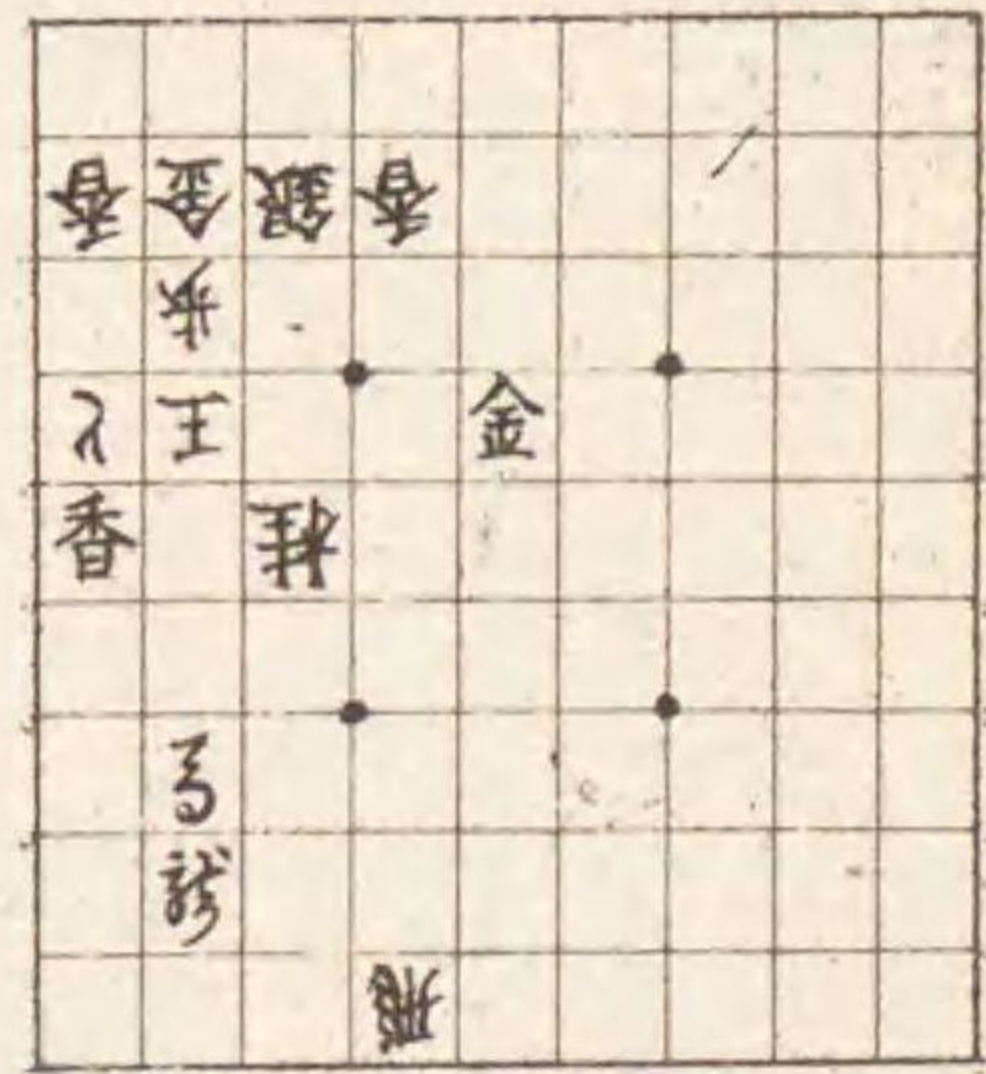 香金銀香
歩
と王金
香桂
馬
龍
飛